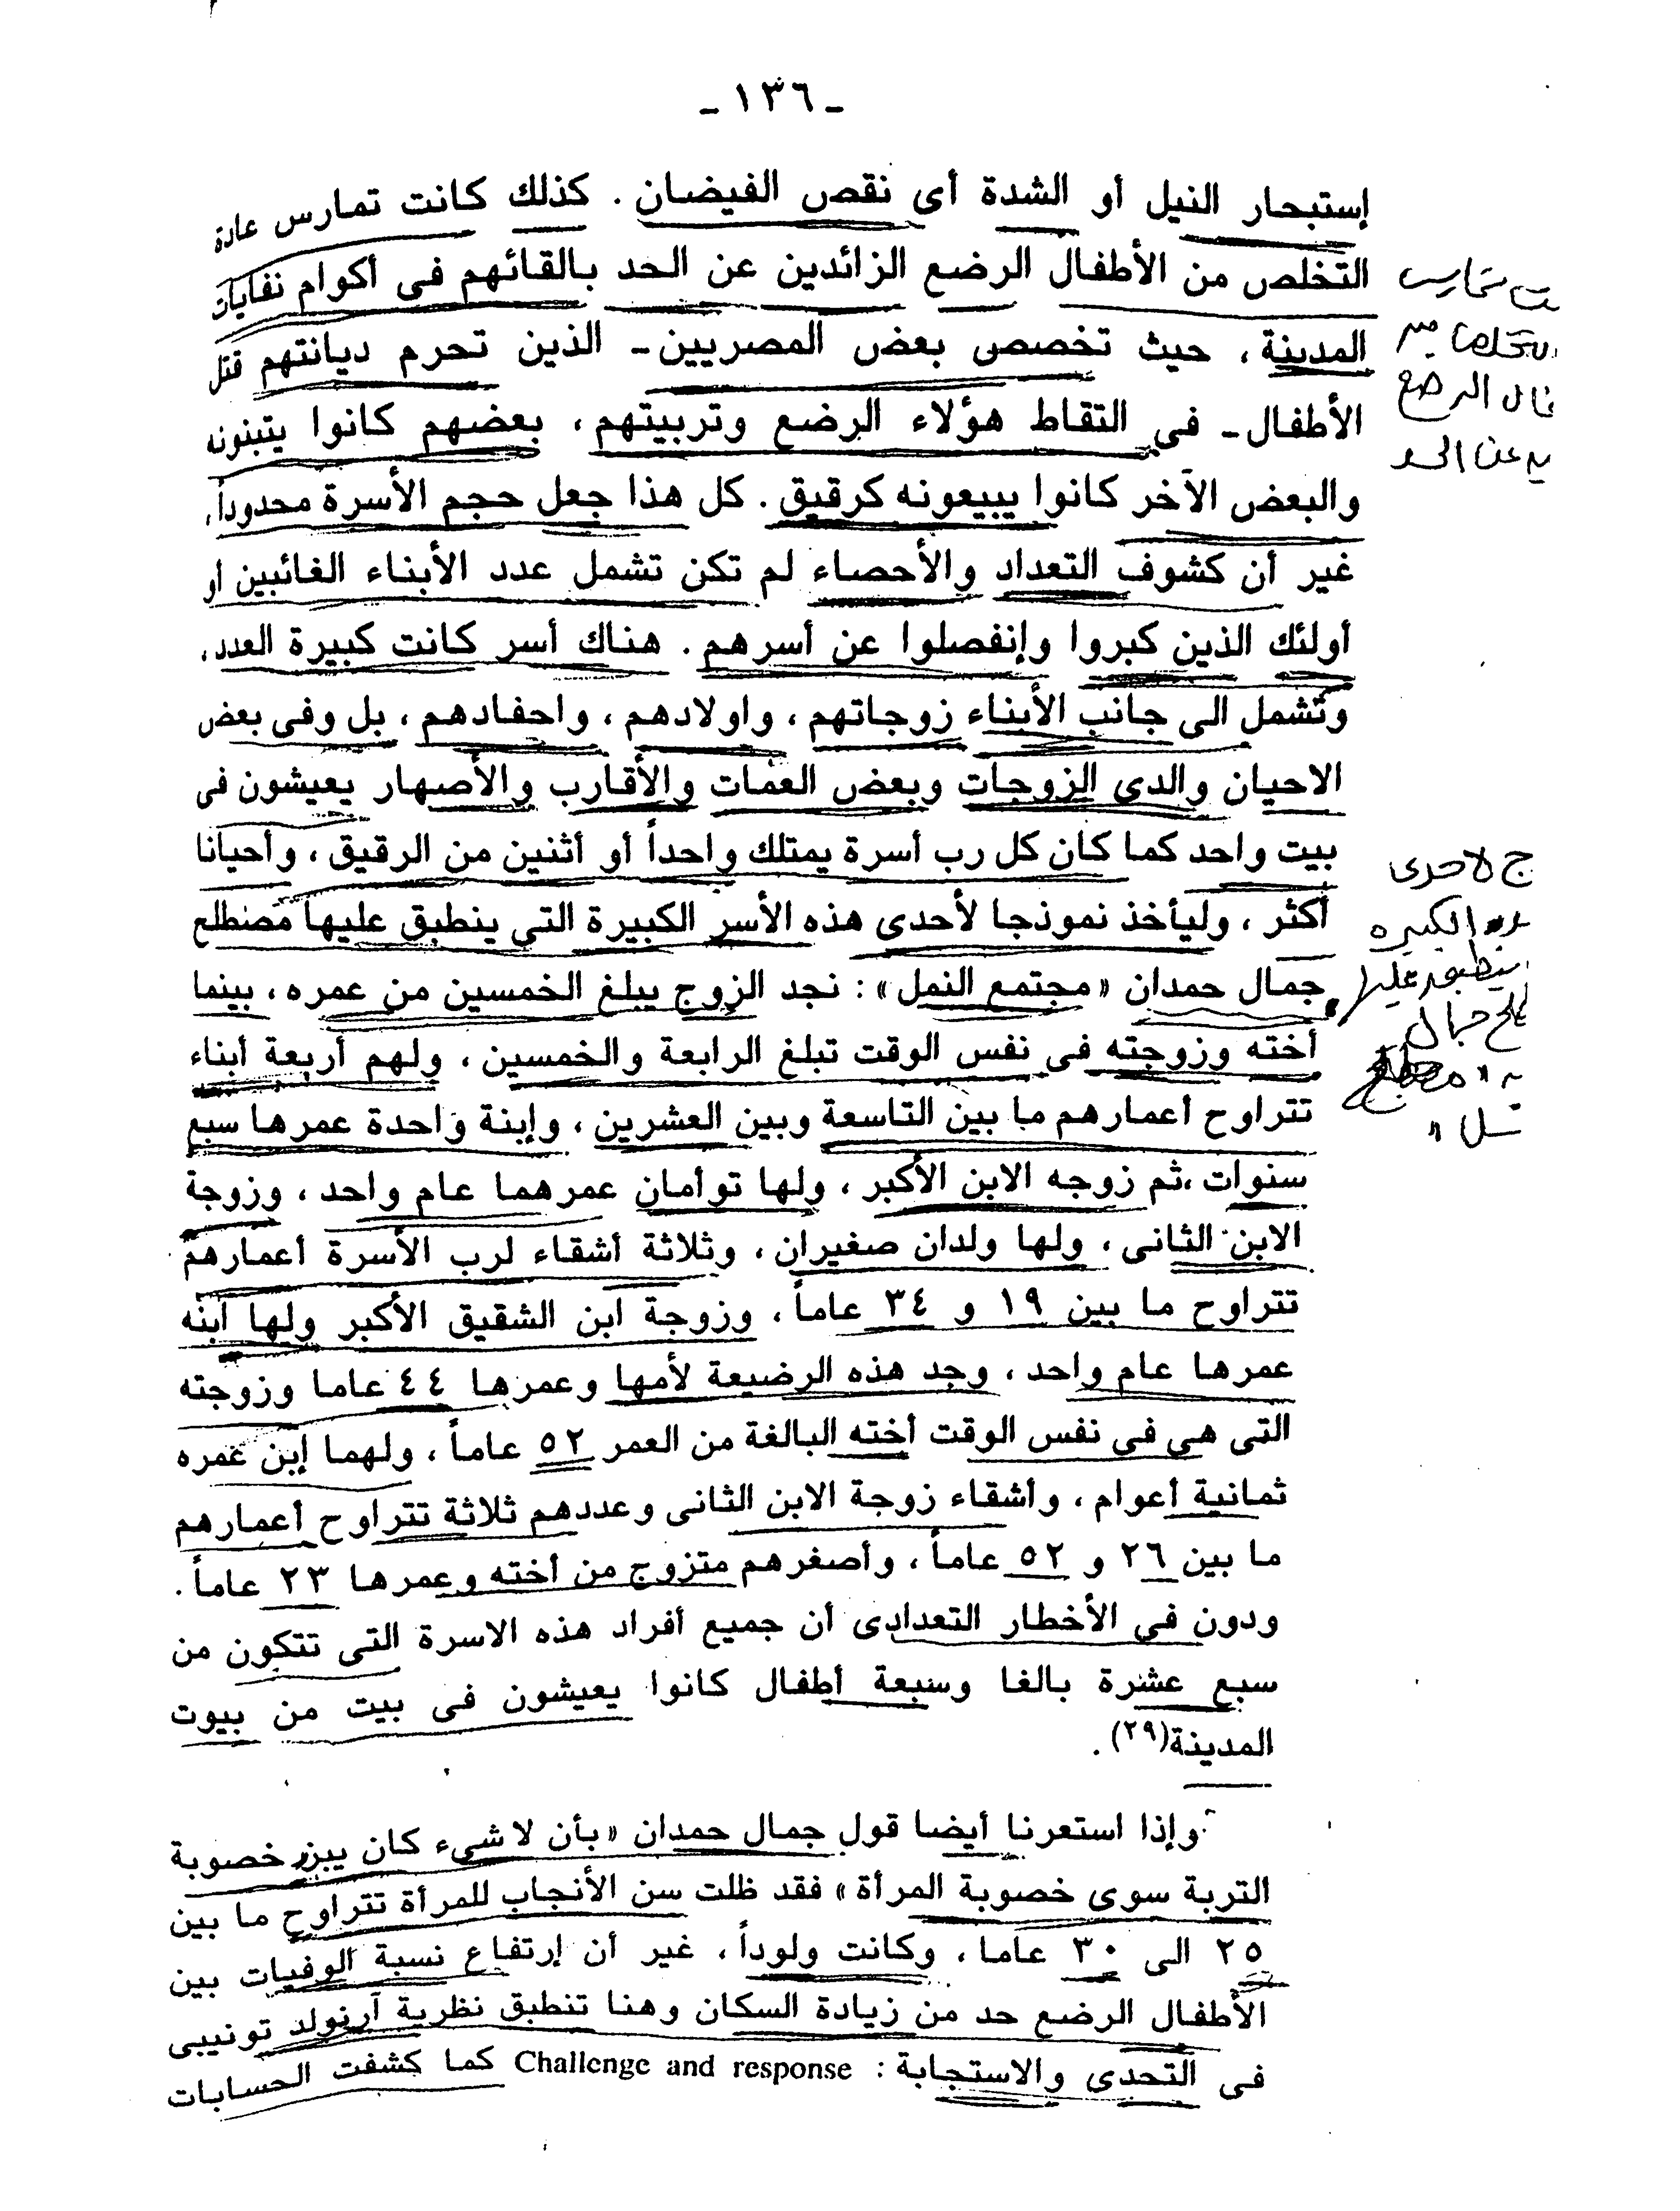 ـ ١٣٦ ـ
إستبحار النيل أو الشدة أى نقص الفيضان . كذلك كانت تمارس عادة
التخلص من الأطفال الرضع الزائدين عن الحد بالقائهم فى أكوام نفايات
المدينة ، حيث تخصص بعض المصريين ـ الذين تحرم ديانتهم قتل
الأطفال ـ فى التقاط هؤلاء الرضع وتربيتهم ، بعضهم كانوا يتبنونه
والبعض الآخر كانوا يبيعونه كرقيق . كل هذا جعل حجم الأسرة محدوداً ،
غير أن كشوف التعداد والأحصاء لم تكن تشمل عدد الأبناء الغائبين او
أولئك الذين كبروا وإنفصلوا عن أسرهم . هناك أسر كانت كبيرة العدد ،
وتشمل الى جانب الأبناء زوجاتهم ، واولادهم ، واحفادهم ، بل وفى بعض
الاحيان والدى الزوجات وبعض العمات والأقارب والأصهار يعيشون فى
بيت واحد كما كان كل رب أسرة يمتلك واحداً أو أثنين من الرقيق ، وأحيانا
أكثر ، وليأخذ نموذجا لأحدى هذه الأسر الكبيرة التي ينطبق عليها مصطلح
جمال حمدان « مجتمع النمل » : نجد الزوج يبلغ الخمسين من عمره ، بينما
أخته وزوجته فى نفس الوقت تبلغ الرابعة والخمسين ، ولهم أربعة أبناء
تتراوح أعمارهم ما بين التاسعة وبين العشرين ، وإبنة واحدة عمرها سبع
سنوات ، ثم زوجه الابن الأكبر ، ولها توأمان عمرهما عام واحد ، وزوجة
الابن الثانى ، ولها ولدان صغيران ، وثلاثة أشقاء لرب الأسرة أعمارهم
تتراوح ما بين ١٩ و ٣٤ عاماً ، وزوجة ابن الشقيق الأكبر ولها ابنه
عمرها عام واحد ، وجد هذه الرضيعة لأمها وعمرها ٤٤ عاما وزوجته
التى هى فى نفس الوقت أخته البالغة من العمر ٥٢ عاماً ، ولهما إبن عمره
ثمانية أعوام ، وأشقاء زوجة الابن الثانى وعددهم ثلاثة تتراوح أعمارهم
ما بين ٢٦ و ٥٢ عاماً ، وأصغرهم متزوج من أخته وعمرها ٢٣ عاماً .
ودون في الأخطار التعدادى أن جميع أفراد هذه الاسرة التى تتكون من
سبع عشرة بالغا وسبعة أطفال كانوا يعيشون فى بيت من بيوت
المدينة(٢٩) .
وإذا استعرنا أيضا قول جمال حمدان « بأن لا شىء كان يبزر خصوبة
التربة سوى خصوبة المرأة » فقد ظلت سن الأنجاب للمرأة تتراوح ما بين
٢٥ الى ٣٠ عاما ، وكانت ولوداً ، غير أن إرتفاع نسبة الوفيات بين
الأطفال الرضع حد من زيادة السكان وهنا تنطبق نظرية آرنولد تونيبى
فى التحدى والاستجابة : Challenge and response كما كشفت الحسابات
تمارس
الرضع
عن الحد
ج لاحدى
الكبيره
ينطبق عليها
جمال